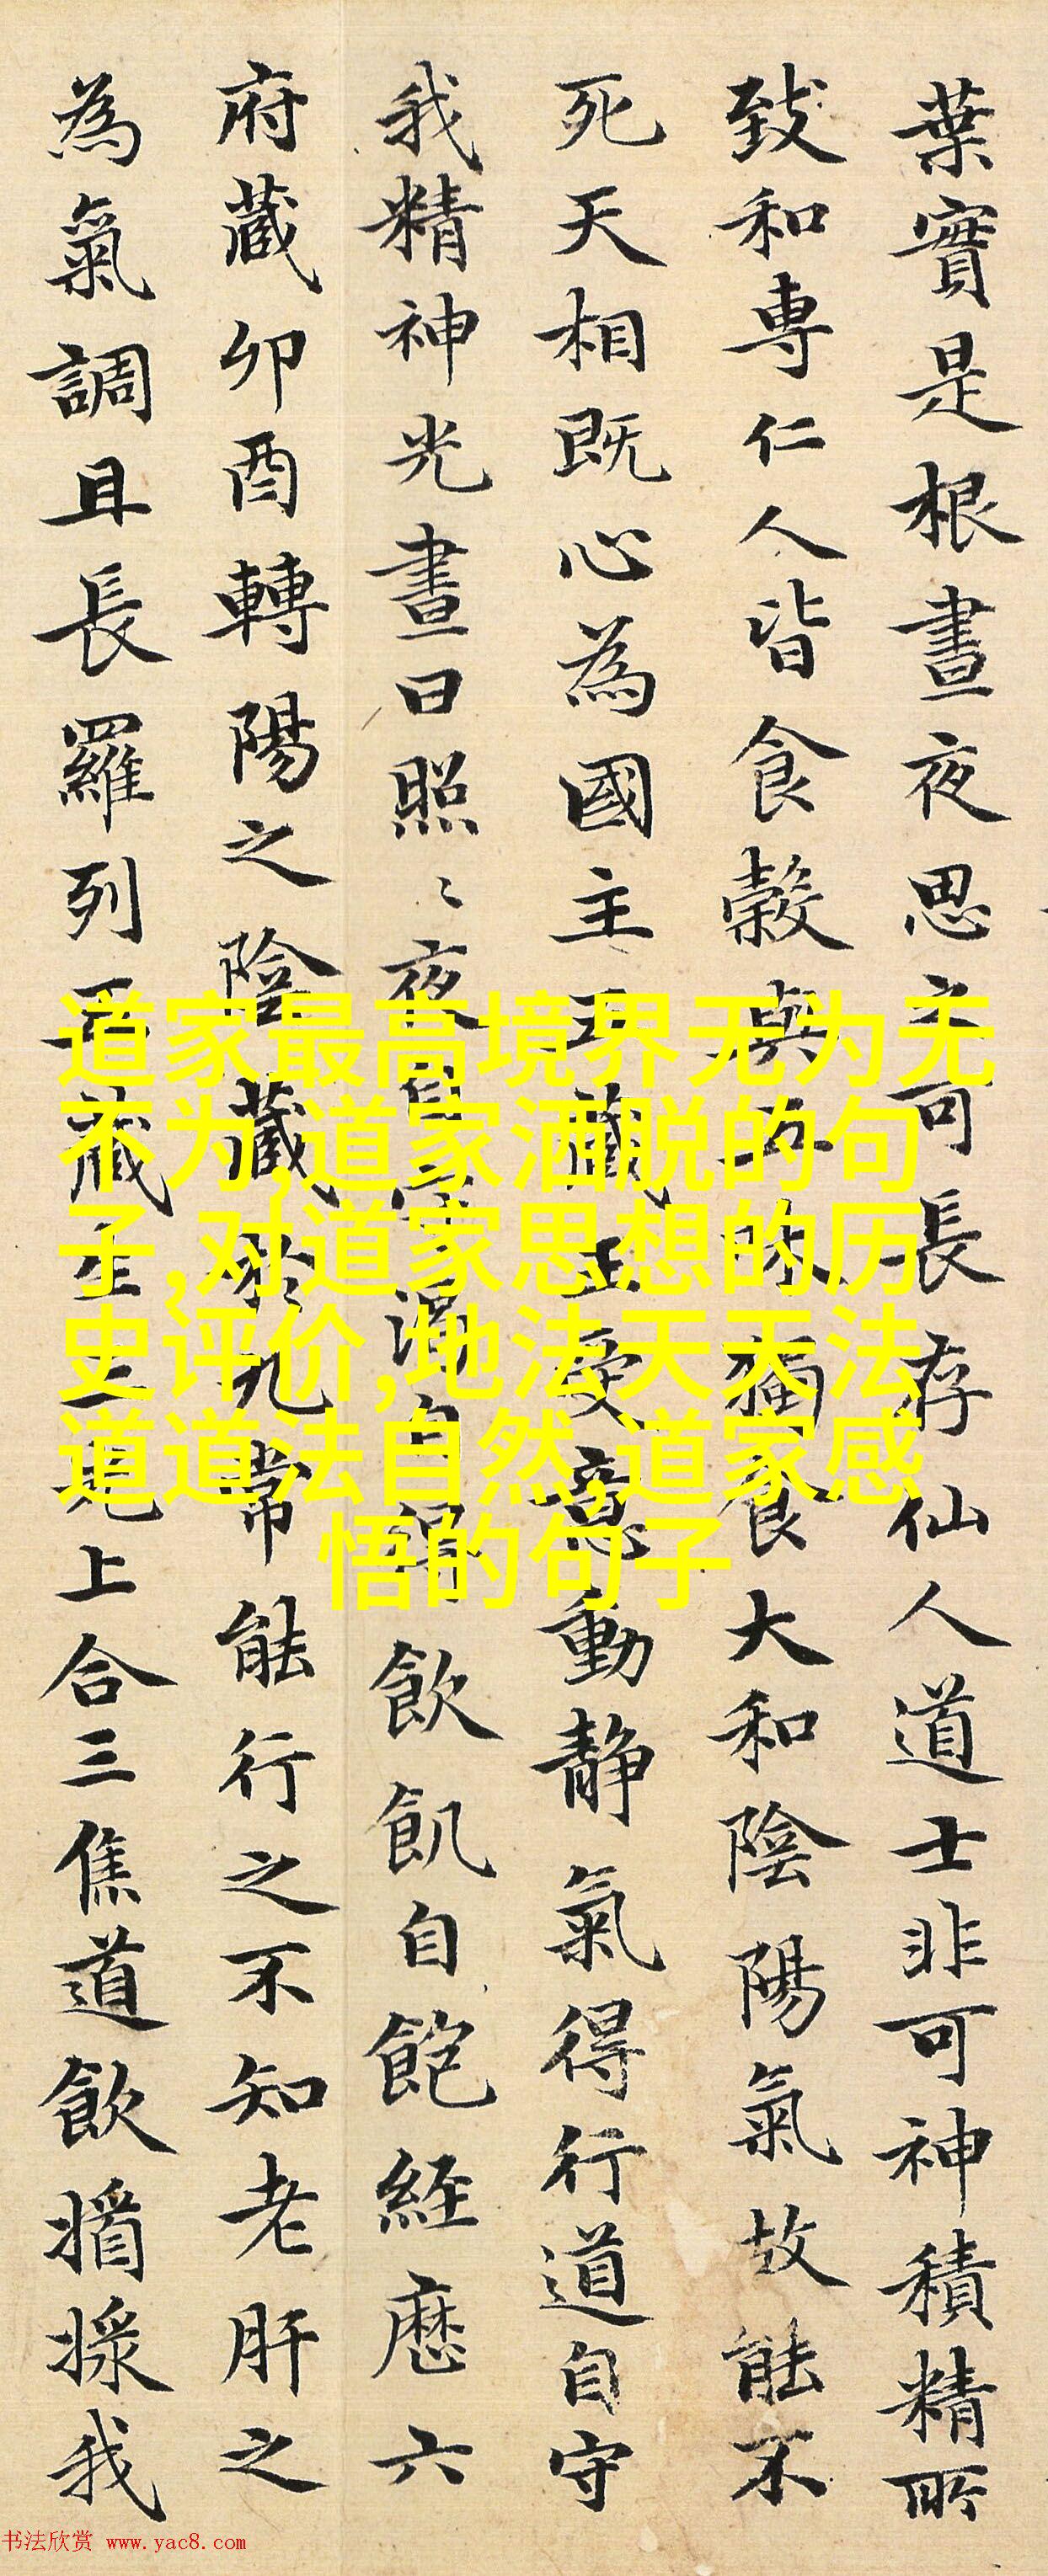 葉實是根晝夜思之可長存仙人道士非可神積精所
致和専仁人皆食榖與五味獨食大和陰陽氣故能不
死天相既心為國主五藏王受意動静氣得行道自守
我精神光晝日照〻夜自守渴自得飲飢自飽經歷六
府藏卯酉轉陽之陰藏於九常能行之不知老肝之
為氣調且長羅列五藏生三光上合三焦道飲我
道家最高境界无为无
不为,道家洒脱的句
子,对道家思想的历
史评价,地法天天法
道道法自然,道家感
悟的句子
书法欣赏 www.yac8.com